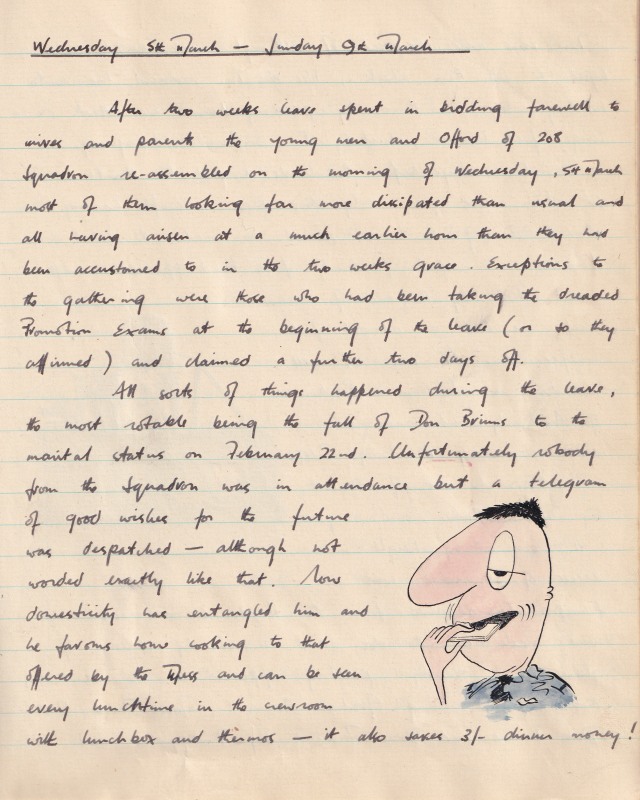 Wednesday 5th March — Sunday 9th March
After two weeks leave spent in bidding farewell to
wives and parents the young men and Offord of 208
Squadron re-assembled on the morning of Wednesday, 5th March
most of them looking far more dissipated than usual and
all having arisen at a much earlier hour than they had
been accustomed to in the two weeks grace. Exceptions to
the gathering were those who had been taking the dreaded
Promotion Exams at the beginning of the leave (or so they
affirmed) and claimed a further two days off.
All sorts of things happened during the leave,
the most notable being the fall of Don Brimms to the
marital status on February 22nd. Unfortunately nobody
from the Squadron was in attendance but a telegram
of good wishes for the future
was despatched — although not
worded exactly like that. Now
domesticity has entangled him and
he favours home cooking to that
offered by the Mess and can be seen
every lunchtime in the crewroom
with lunchbox and thermos — it also saves 3/- dinner money!